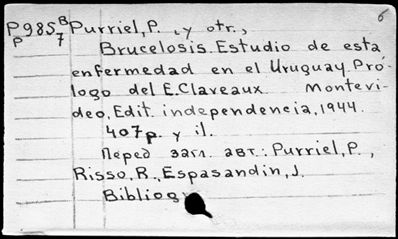 6
P985 B7 Purriel, P., y otr.,
P
Brucelosis. Estudio de esta
enfermedad en el Uruguay. Pró-
logo del E. Claveaux. Montevi-
deo, Edit. independencia, 1944.
407 p. y il.
Перед загл. авт.: Purriel, P.,
Risso, R., Espasandin, J.
Bibliog